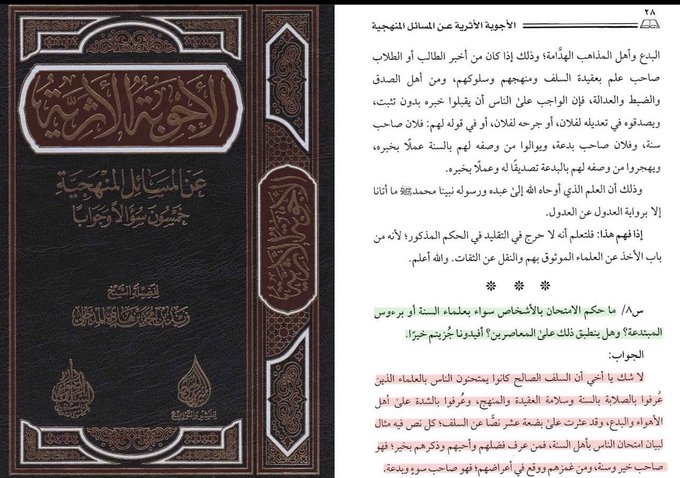 الأجوبة الأثرية
عن المسائل المنهجية
خمسون سؤالاً وجوابًا
لفضيلة الشيخ
زيد بن محمد بن هادي المدخلي
الأجوبة الأثرية
٢٨
الأجوبة الأثرية عن المسائل المنهجية
البدع وأهل المذاهب الهدَّامة؛ وذلك إذا كان من أخبر الطالب أو الطلاب
صاحب علم بعقيدة السلف ومنهجهم وسلوكهم، ومن أهل الصدق
والضبط والعدالة، فإن الواجب علىٰ الناس أن يقبلوا خبره بدون تثبت،
ويصدقوه في تعديله لفلان، أو جرحه لفلان، أو في قوله لهم: فلان صاحب
سنة، وفلان صاحب بدعة، ويوالوا من وصفه لهم بالسنة عملًا بخبره،
ويهجروا من وصفه لهم بالبدعة تصديقًا له وعملًا بخبره.
وذلك أن العلم الذي أوحاه الله إلىٰ عبده ورسوله نبينا محمدﷺ ما أتانا
إلا برواية العدول عن العدول.
إذا فهم هذا: فلتعلم أنه لا حرج في التقليد في الحكم المذكور؛ لأنه من
باب الأخذ عن العلماء الموثوق بهم والنقل عن الثقات. والله أعلم.
* * *
س٨/ ما حكم الامتحان بالأشخاص سواء بعلماء السنة أو برءوس
المبتدعة؟ وهل ينطبق ذلك علىٰ المعاصرين؟ أفيدونا جُزيتم خيرًا.
الجواب:
لا شك يا أخي أن السلف الصالح كانوا يمتحنون الناس بالعلماء الذين
عُرفوا بالصلابة بالسنة وسلامة العقيدة والمنهج، وعُرفوا بالشدة علىٰ أهل
الأهواء والبدع، وقد عثرت علىٰ بضعة عشر نصًّا عن السلف؛ كل نص فيه مثال
لبيان امتحان الناس بأهل السنة، فمن عرف فضلهم وأحبهم وذكرهم بخير؛ فهو
صاحب خير وسنة، ومن غمزهم ووقع في أعراضهم؛ فهو صاحب سوءٍ وبدعة.